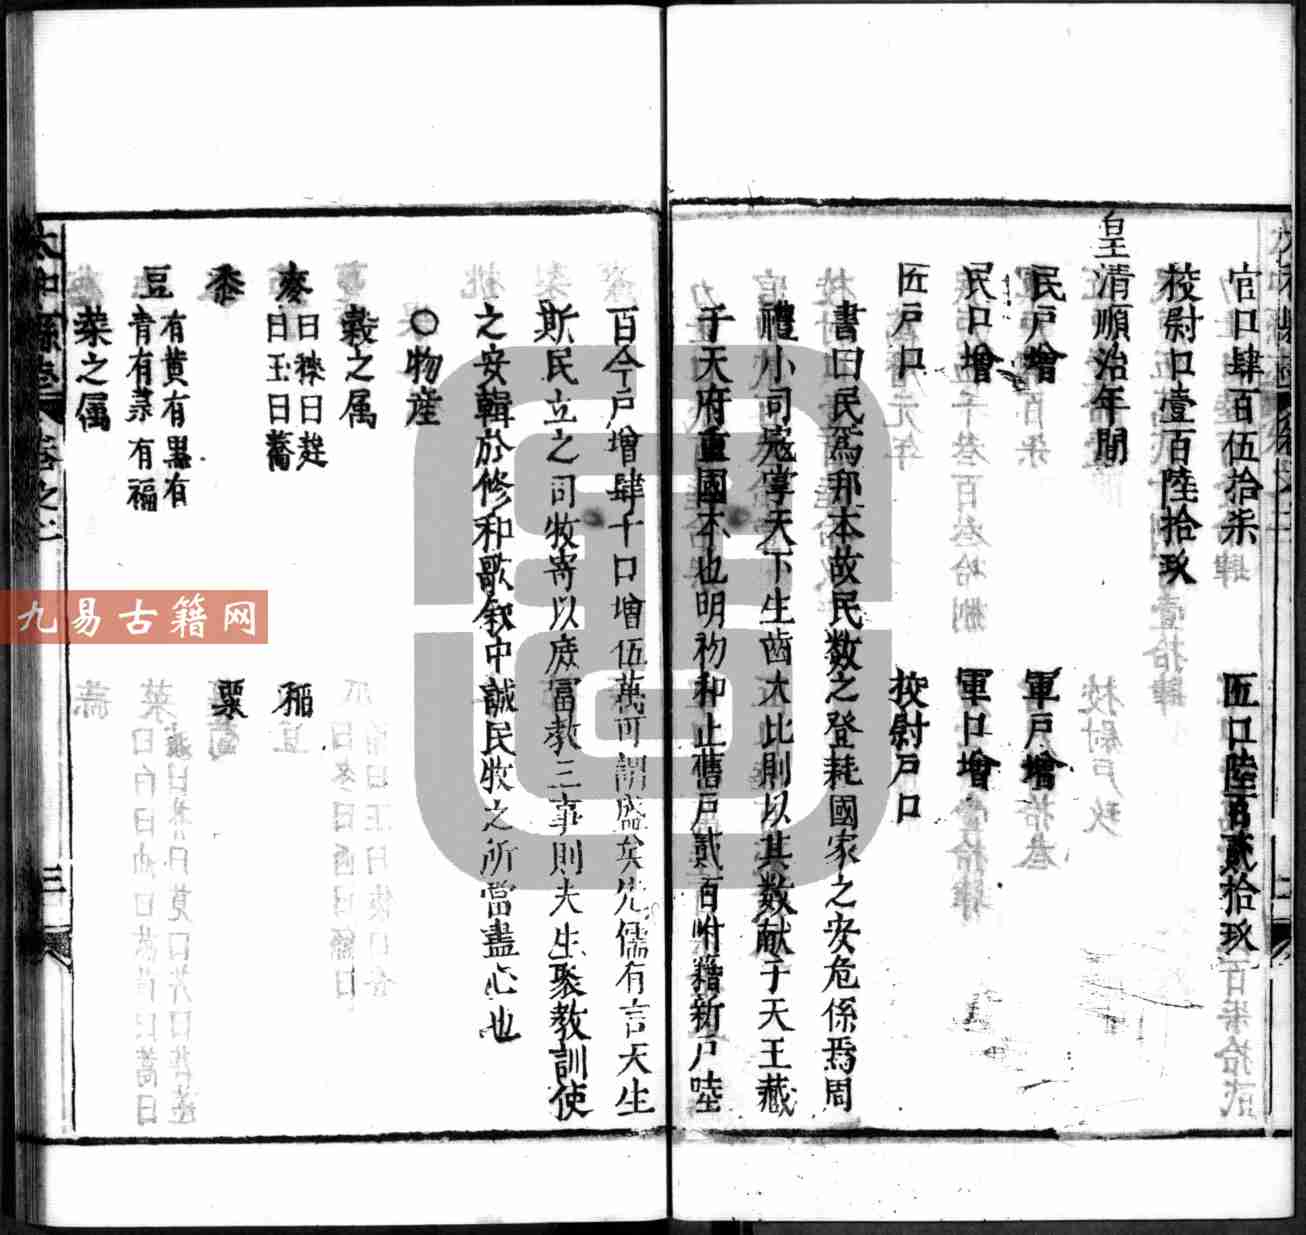 官口肆百伍拾柒 匠口陸百貳拾玖
校尉口壹百陸拾玖
皇清順治年間
民戶增 軍戶增
民口增 軍口增
匠戶口 校尉戶口
書曰民爲邦本故民數之登耗國家之安危係焉周
禮小司寇掌天下生齒大比則以其數献于天王藏
于天府重國本也明初和止舊戶貳百附籍新戶陸
百今戶增肆千口增伍萬可謂盛矣先儒有言天生
斯民立之司牧寄以庶富教三事則夫生聚教訓使
之安輯於修和歌叙中誠民牧之所當盡心也
○物産
穀之属
麥 曰穬曰䞘 曰玉曰蕎 稻
黍 粟
豆 有黃有黑有 青有菉有䅏
菜之属
三
九易古籍网